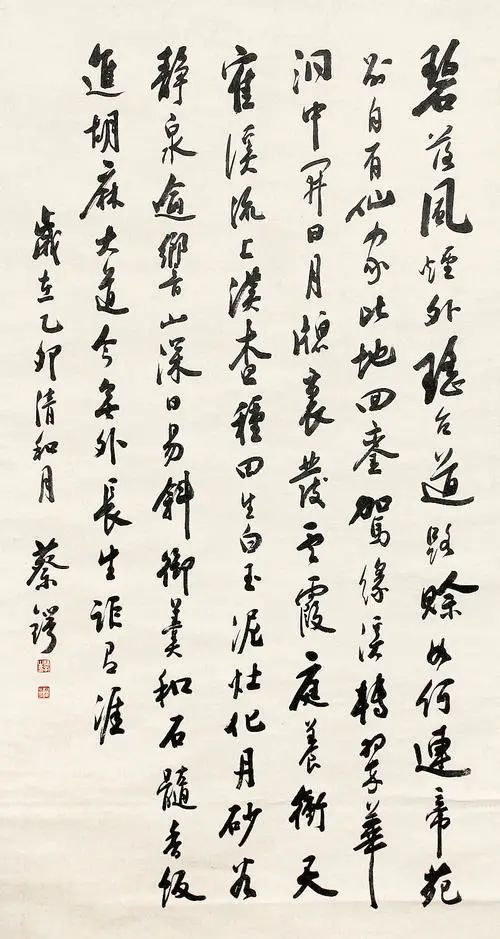 碧落風煙外瑤台道路賒如何連帝苑
別自有仙家此地回鑾駕緣溪轉翠華
洞中開日月牕裏發雲霞庭養衝天
寉溪流上漢查種田生白玉泥灶化丹砂谷
靜泉逾響山深日易斜御羹和石髓香飯
進胡麻大道今無外長生詎有涯
歲在乙卯清和月 蔡鍔